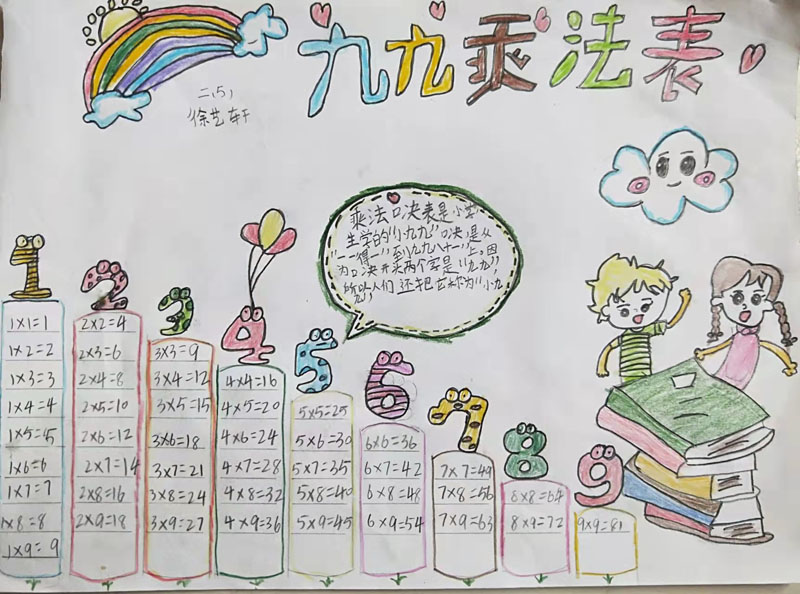 九九乘法表
二(5)
徐艺轩
乘法口决表是小学
生学的"小九九"口决,是从
"一一得一"到九九八十一"止,因
为口决开头两个字是"九九",
所以人们还把它称为"小九
九"
1
1×1=1
1×2=2
1×3=3
1×4=4
1×5=5
1×6=6
1×7=7
1×8=8
1×9=9
2
2×2=4
2×3=6
2×4=8
2×5=10
2×6=12
2×7=14
2×8=16
2×9=18
3
3×3=9
3×4=12
3×5=15
3×6=18
3×7=21
3×8=24
3×9=27
4
4×4=16
4×5=20
4×6=24
4×7=28
4×8=32
4×9=36
5
5×5=25
5×6=30
5×7=35
5×8=40
5×9=45
6
6×6=36
6×7=42
6×8=48
6×9=54
7
7×7=49
7×8=56
7×9=63
8
8×8=64
8×9=72
9
9×9=81